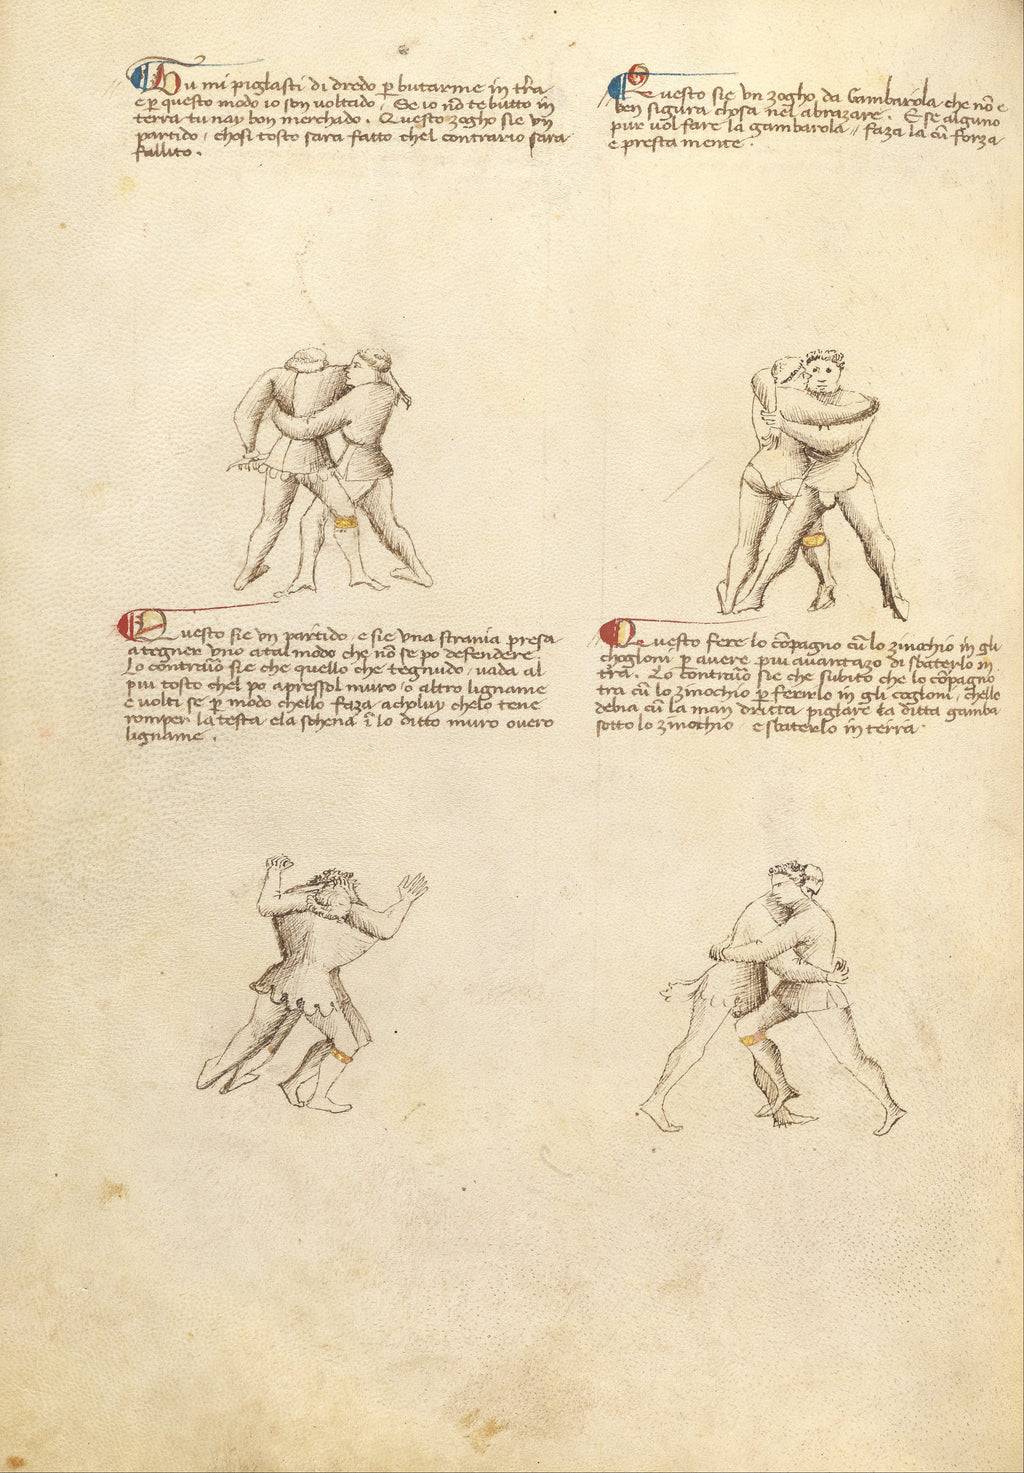 Tu mi piglasti di dredo per butarme in tera
e per questo modo io son voltado. Se io no te butto in
terra tu nay bon merchado. Questo zogho sie un
partido, chosi tosto sara fatto chel contrario sara
fallito.
Questo sie un zogho da Gambarola che no e
ben sigura chosa nel abrazare. E se alguno
pur vol fare la gambarola, faza la cu forza
e presta mente.
Questo sie un partido, e sie una strania presa
a tegner uno a tal modo che no se po defendere.
Lo contrario sie che quello che tegnudo, vada al
piu tosto chel po apresso l muro, o altro ligname
e volti se per modo chello faza a choluy chelo tene
romper la testa, e la schena i lo ditto muro overo
ligname.
Questo fere lo compagno cu lo zinochio in gli
chogloni per avere piu avantazo di sbaterlo in
tera. Lo contrario sie che subito che lo compagno
tra cu lo zinochio per ferirlo in gli cogloni, chello
debia cu la man dritta pigliare la ditta gamba
sotto lo zinochio e sbaterlo in terra.